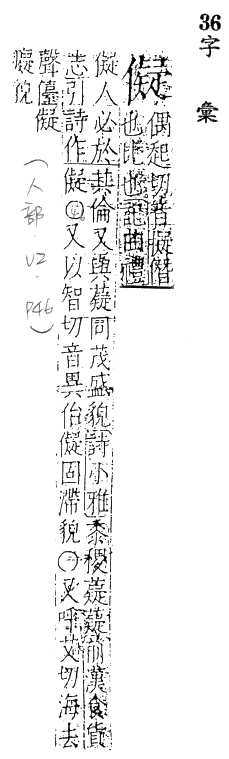 36
字彙
儗
偶起切音擬僭
也比也記曲禮
儗人必於其倫又與薿同茂盛貌詩小雅黍稷薿薿前漢食貨
志引詩作儗○又以智切音異佁儗固滯貌○又呼艾切海去
聲儓儗
癡貌
(人部.V2.P46)